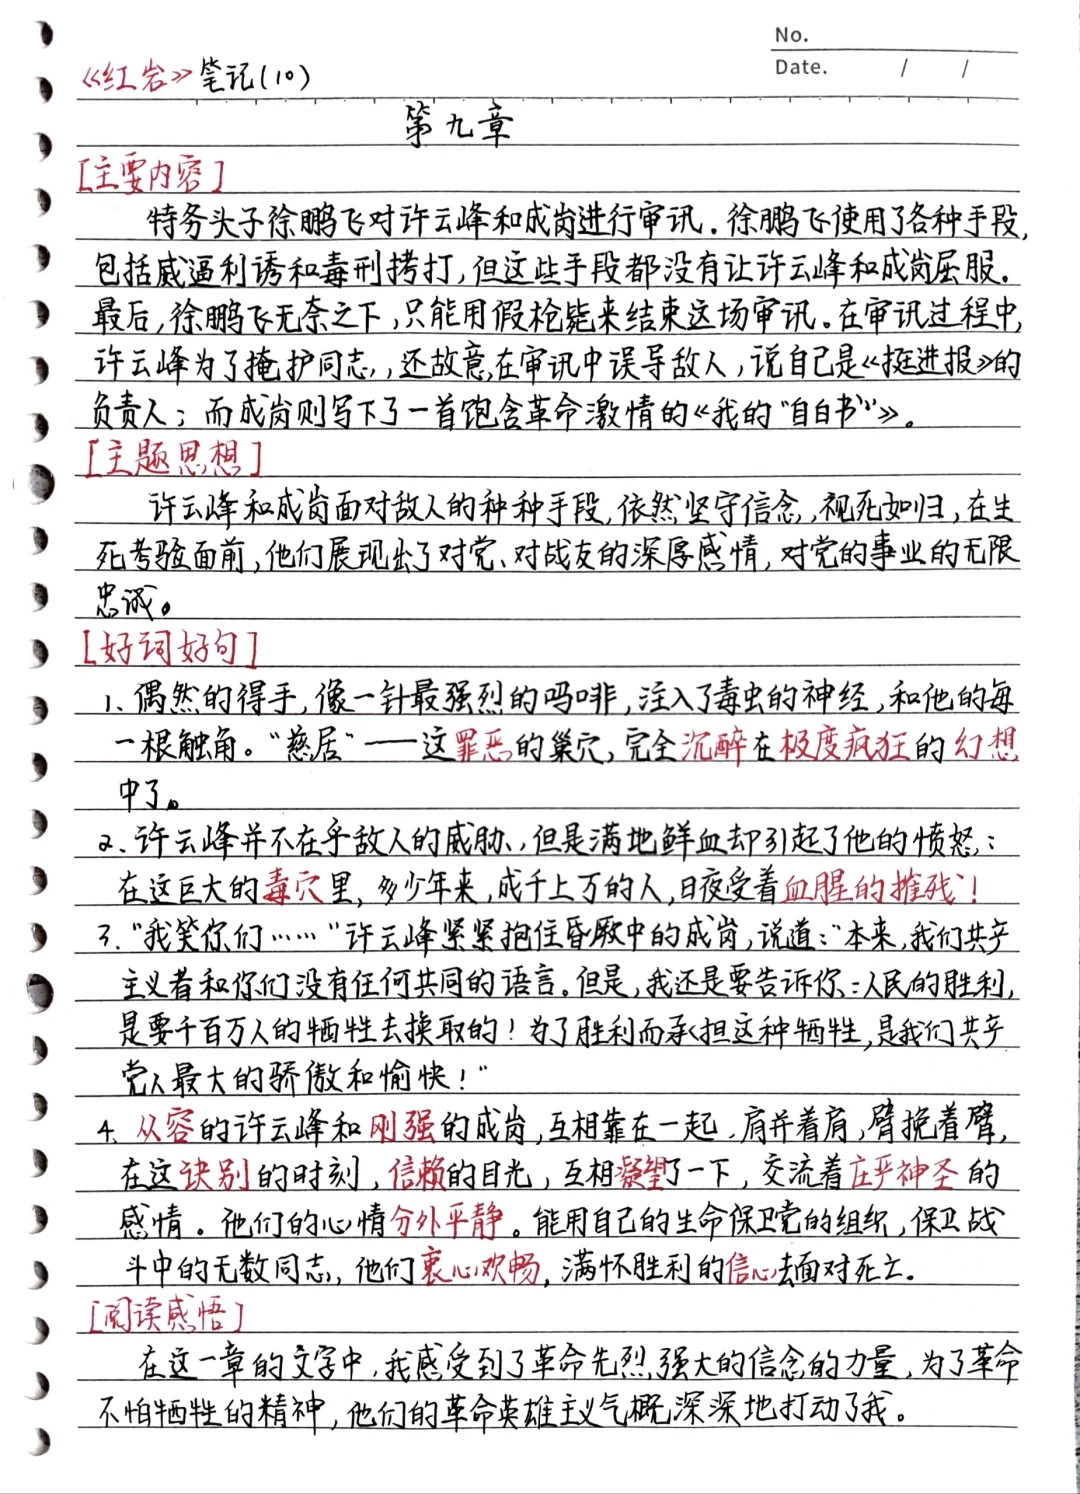 No.
Date. / /
《红岩》笔记(10)
第九章
[主要内容]
特务头子徐鹏飞对许云峰和成岗进行审讯。徐鹏飞使用了各种手段,
包括威逼利诱和毒刑拷打,但这些手段都没有让许云峰和成岗屈服。
最后,徐鹏飞无奈之下,只能用假枪毙来结束这场审讯。在审讯过程中,
许云峰为了掩护同志,还故意在审讯中误导敌人,说自己是《挺进报》的
负责人;而成岗则写下了一首饱含革命激情的《我的"自白书"》。
[主题思想]
许云峰和成岗面对敌人的种种手段,依然坚守信念,视死如归,在生
死考验面前,他们展现出了对党、对战友的深厚感情,对党的事业的无限
忠诚。
[好词好句]
1、偶然的得手,像一针最强烈的吗啡,注入了毒虫的神经,和他的每
一根触角。"慈居"——这罪恶的巢穴,完全沉醉在极度疯狂的幻想
中了。
2、许云峰并不在乎敌人的威胁,但是满地鲜血却引起了他的愤怒:
在这巨大的毒穴里,多少年来,成千上万的人,日夜受着血腥的摧残!
3."我笑你们……"许云峰紧紧抱住昏厥中的成岗,说道:"本来,我们共产
主义者和你们没有任何共同的语言。但是,我还是要告诉你:人民的胜利,
是要千百万人的牺牲去换取的!为了胜利而承担这种牺牲,是我们共产
党人最大的骄傲和愉快!"
4、从容的许云峰和刚强的成岗,互相靠在一起,肩并着肩,臂挽着臂,
在这诀别的时刻,信赖的目光,互相凝望了一下,交流着庄严神圣的
感情。他们的心情分外平静。能用自己的生命保卫党的组织,保卫战
斗中的无数同志,他们衷心欢畅,满怀胜利的信心去面对死亡。
[阅读感悟]
在这一章的文字中,我感受到了革命先烈强大的信念的力量,为了革命
不怕牺牲的精神,他们的革命英雄主义气概深深地打动了我。